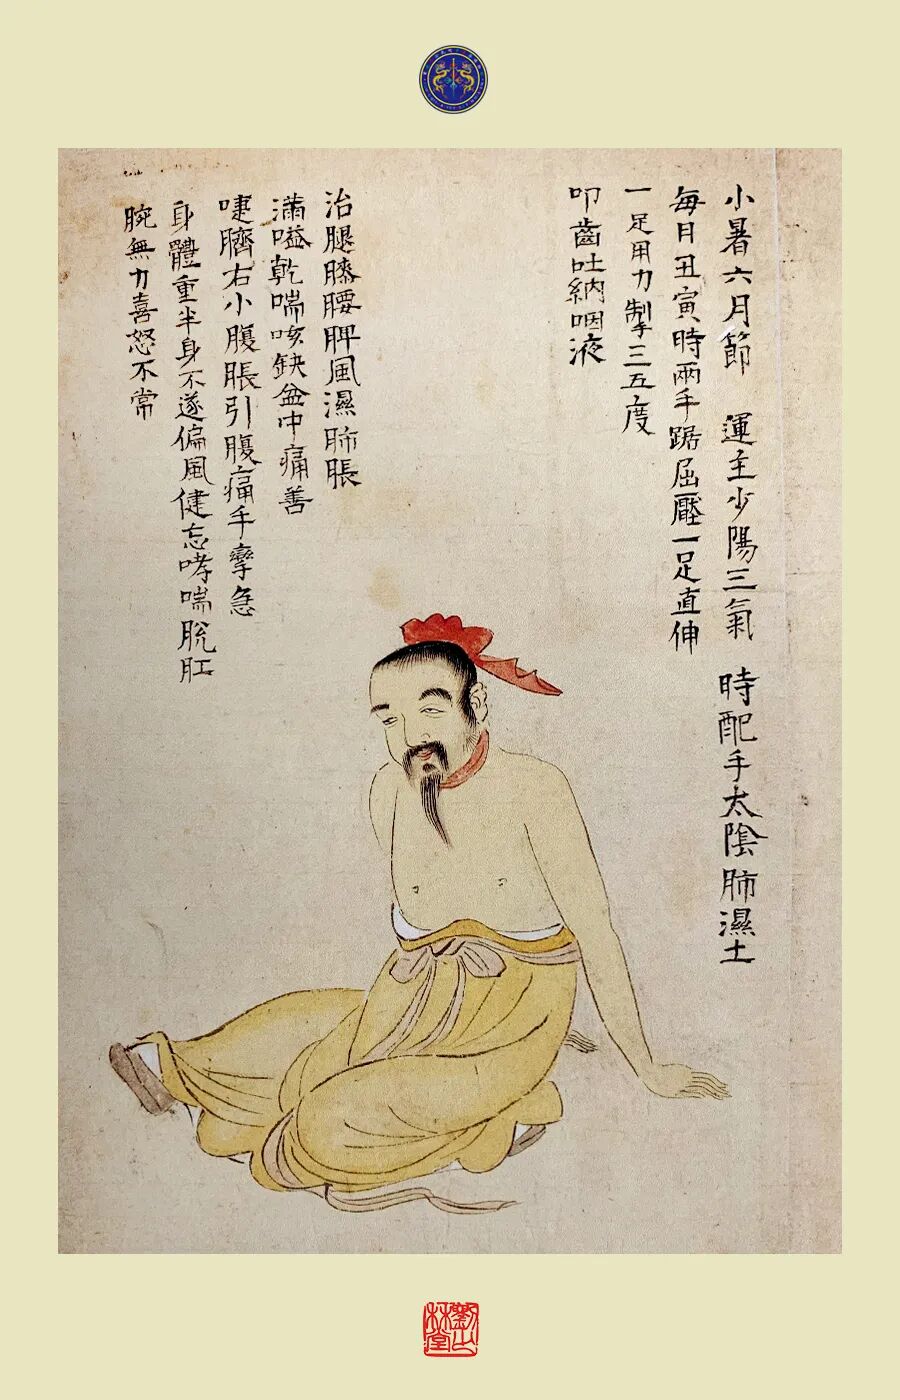 小暑六月節　運主少陽三氣　時配手太陰肺濕土
每日丑寅時兩手踞屈壓一足直伸
一足用力掣三五度
叩齒吐納咽液
治腿膝腰脾風濕肺脹
滿嗌乾喘咳缺盆中痛善
嚏臍右小腹脹引腹痛手攣急
身體重半身不遂偏風健忘哮喘脫肛
腕無力喜怒不常